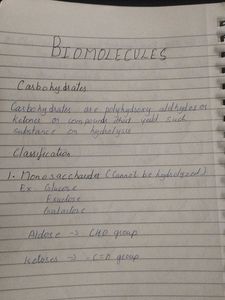 BIOMOLECULES
Carbohydrates
Carbohydrates are polyhydroxy aldehydes or
ketones or compounds that yield such
substance on hydrolysis
Classification
1. Monosaccharides (Cannot be hydrolyzed)
Ex Glucose
Fructose
Galactose
Aldose → CHO group
Ketoses → -C=O group